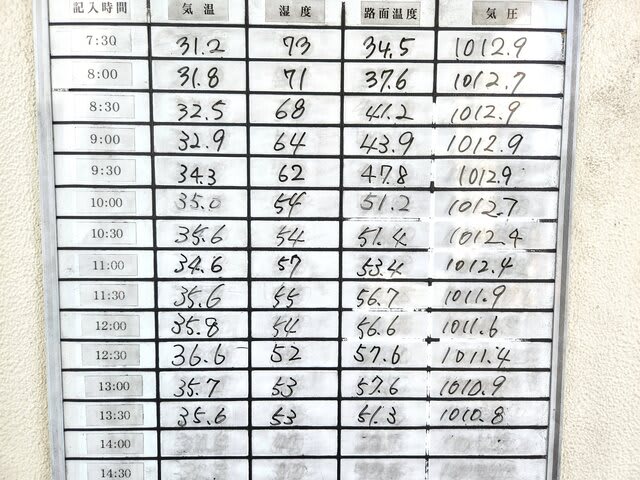 記入時間 気温 湿度 路面温度 気圧
7:30 31.2 73 34.5 1012.9
8:00 31.8 71 37.6 1012.7
8:30 32.5 68 41.2 1012.9
9:00 32.9 64 43.9 1012.9
9:30 34.3 62 47.8 1012.9
10:00 35.0 54 51.2 1012.7
10:30 35.6 54 51.4 1012.4
11:00 34.6 57 53.4 1012.4
11:30 35.6 55 56.7 1011.9
12:00 35.8 54 56.6 1011.6
12:30 36.6 52 57.6 1011.4
13:00 35.7 53 57.6 1010.9
13:30 35.6 53 51.3 1010.8
14:00
14:30